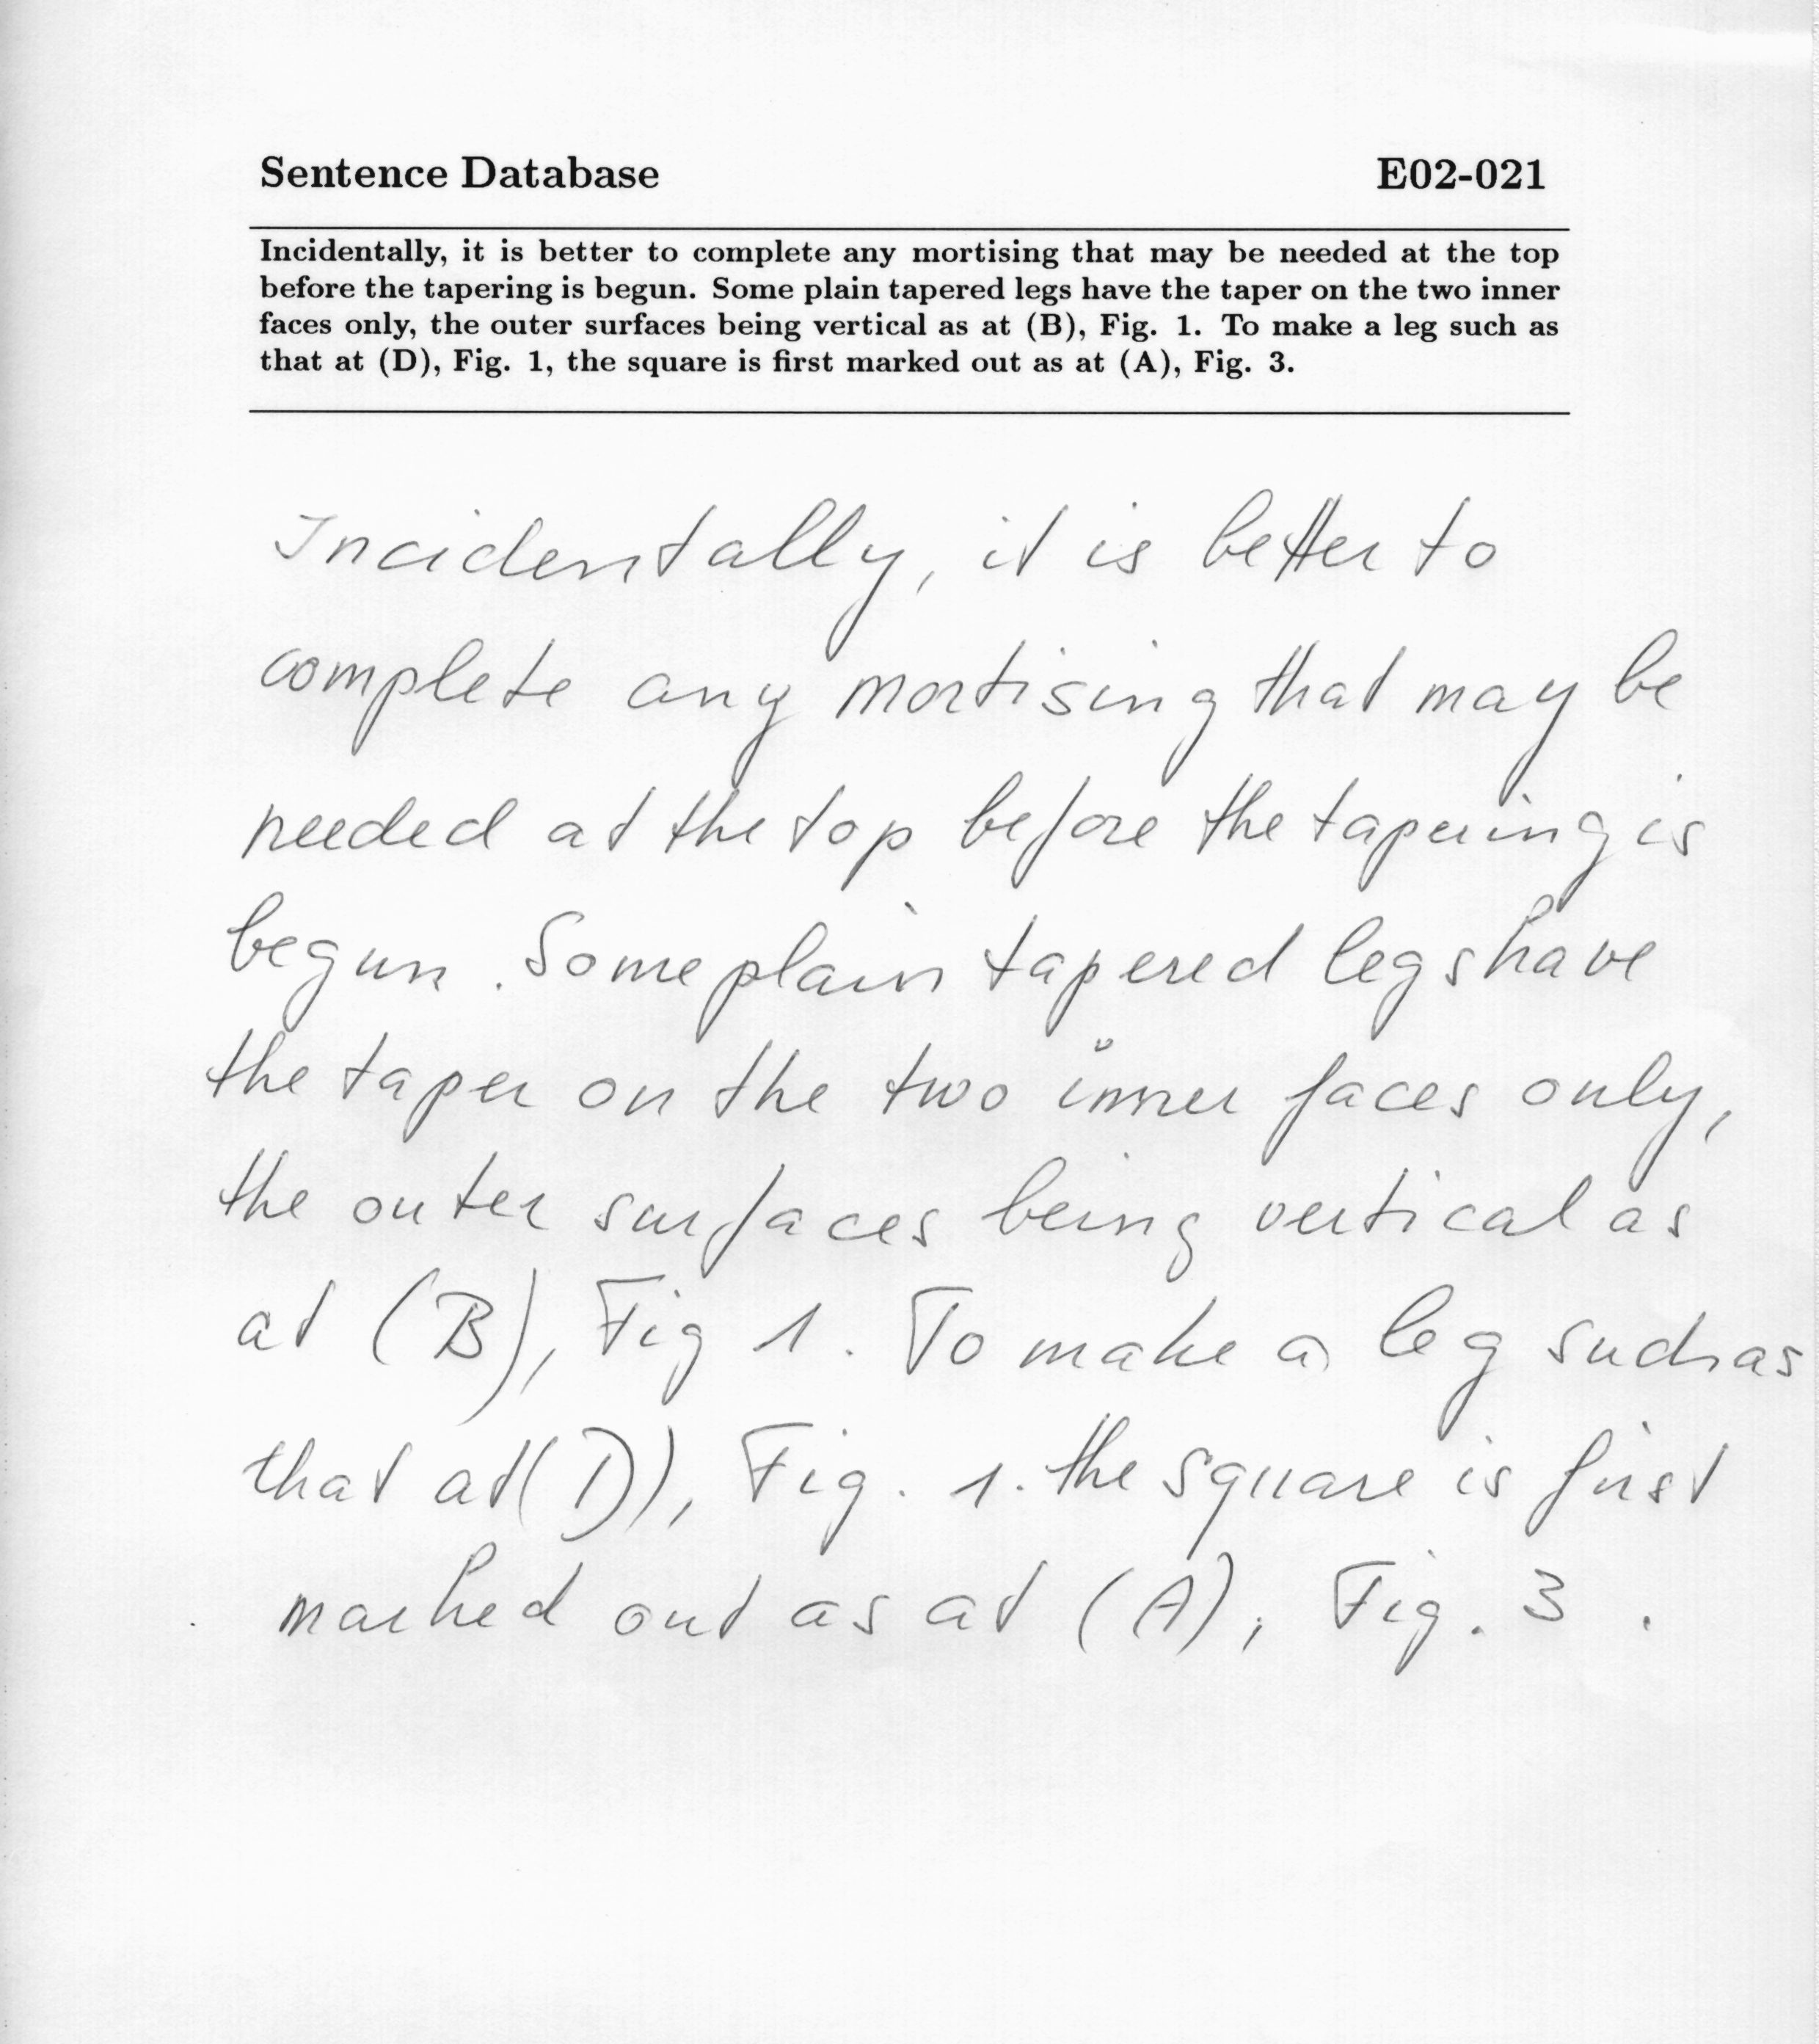 Sentence Database E02-021
Incidentally, it is better to complete any mortising that may be needed at the top
before the tapering is begun. Some plain tapered legs have the taper on the two inner
faces only, the outer surfaces being vertical as at (B), Fig. 1. To make a leg such as
that at (D), Fig. 1, the square is first marked out as at (A), Fig. 3.
Incidentally, it is better to
complete any mortising that may be
needed at the top before the tapering is
begun. Some plain tapered legs have
the taper on the two inner faces only,
the outer surfaces being vertical as
at (B), Fig 1. To make a leg such as
that at (D), Fig. 1. the square is first
marked out as at (A), Fig. 3.